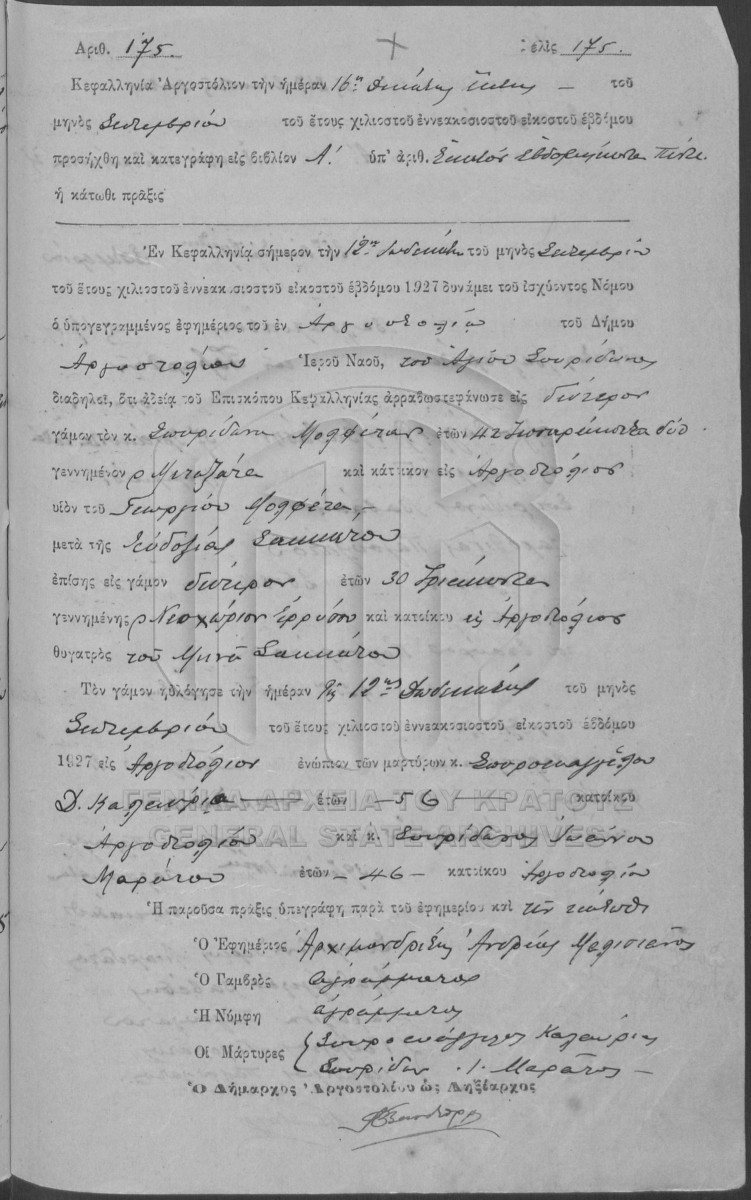 Ἀριθ. 175. Σελὶς 175.
Κεφαλληνία Ἀργοστόλιον τὴν ἡμέραν 16ην δεκάτην ἕκτην – τοῦ
μηνὸς Σεπτεμβρίου τοῦ ἔτους χιλιοστοῦ ἐννεακοσιοστοῦ εἰκοστοῦ ἑβδόμου
προσήχθη καὶ κατεγράφη εἰς βιβλίον Α΄. ὑπ' ἀριθ. Ἑκατὸν ἑβδομήκοντα πέντε.
ἡ κάτωθι πρᾶξις
Ἐν Κεφαλληνίᾳ σήμερον τὴν 12ην δωδεκάτην τοῦ μηνὸς Σεπτεμβρίου
τοῦ ἔτους χιλιοστοῦ ἐννεακοσιοστοῦ εἰκοστοῦ ἑβδόμου 1927 δυνάμει τοῦ ἰσχύοντος Νόμου
ὁ ὑπογεγραμμένος ἐφημέριος τοῦ ἐν Ἀργοστολίῳ τοῦ Δήμου
Ἀργοστολίου Ἱεροῦ Ναοῦ, τοῦ Ἁγίου Σπυρίδωνος
διαδηλοῖ, ὅτι ἀδείᾳ τοῦ Ἐπισκόπου Κεφαλληνίας ἀρραβωστεφάνωσε εἰς δεύτερον
γάμον τὸν κ. Σπυρίδωνα Μολφέταν ἐτῶν 42 τεσσαράκοντα δύο.
γεννημένον Μεταξάτα καὶ κάτοικον εἰς Ἀργοστόλιον
υἱὸν τοῦ Γεωργίου Μολφέτα,–
μετὰ τῆς Εὐδοξίας Σακκάτου
ἐπίσης εἰς γάμον δεύτερον ἐτῶν 30 τριάκοντα
γεννημένης Νεοχώριον Ἐρρύσου καὶ κατοίκου εἰς Ἀργοστόλιον
θυγατρὸς τοῦ Μηνᾶ Σακκάτου
Τὸν γάμον ηὐλόγησε τὴν ἡμέραν τῆς 12ης δωδεκάτης τοῦ μηνὸς
Σεπτεμβρίου τοῦ ἔτους χιλιοστοῦ ἐννεακοσιοστοῦ εἰκοστοῦ ἑβδόμου
1927 εἰς Ἀργοστόλιον ἐνώπιον τῶν μαρτύρων κ. Σπυροευαγγέλου
Δ. Καλαυρία ἐτῶν – 56 – κατοίκου
Ἀργοστολίου καὶ κ. Σπυρίδωνος Ἰωάννου
Μαράτου ἐτῶν – 46 – κατοίκου Ἀργοστολίου
Ἡ παροῦσα πρᾶξις ὑπεγράφη παρὰ τοῦ ἐφημερίου καὶ τῶν κάτωθι
Ὁ Ἐφημέριος Ἀρχιμανδρίτης Ἀνδρέας
Ὁ Γαμβρὸς ἀγράμματος
Ἡ Νύμφη ἀγράμματος
Οἱ Μάρτυρες Σπυροευάγγελος Καλαυρίας
Σπυρίδων Ι. Μαράτος –
Ὁ Δήμαρχος Ἀργοστολίου ὡς Ληξίαρχος
ΓΕΝΙΚΑ ΑΡΧΕΙΑ ΤΟΥ ΚΡΑΤΟΥΣ
GENERAL STATE ARCHIVES